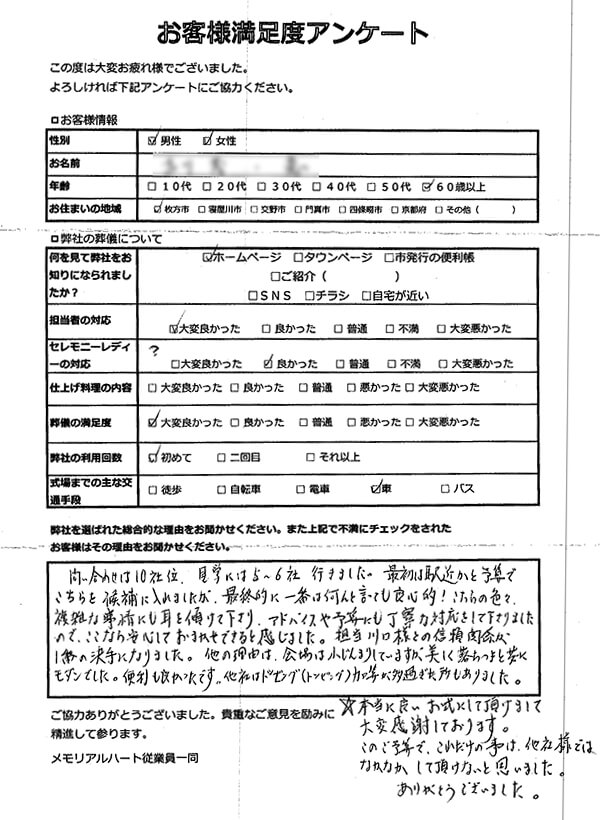 お客様満足度アンケート
この度は大変お疲れ様でございました。
よろしければ下記アンケートにご協力ください。
ロお客様情報
性別 ☑男性 ☑女性
お名前
年齢 □10代 □20代 □30代 □40代 □50代 ☑60歳以上
お住まいの地域 ☑枚方市 □寝屋川市 □交野市 □門真市 □四條畷市 □京都府 □その他（ ）
ロ弊社の葬儀について
何を見て弊社をお知りになられましたか？ ☑ホームページ □タウンページ □市発行の便利帳
□ご紹介（ ）
□SNS □チラシ □自宅が近い
担当者の対応 ☑大変良かった □良かった □普通 □不満 □大変悪かった
セレモニーレディーの対応 ? □大変良かった ☑良かった □普通 □不満 □大変悪かった
仕上げ料理の内容 □大変良かった □良かった □普通 □悪かった □大変悪かった
葬儀の満足度 ☑大変良かった □良かった □普通 □悪かった □大変悪かった
弊社の利用回数 ☑初めて □二回目 □それ以上
式場までの主な交通手段 □徒歩 □自転車 □電車 ☑車 □バス
弊社を選ばれた総合的な理由をお聞かせください。また上記で不満にチェックをされた
お客様はその理由をお聞かせください。
問い合わせは10社位、見学には5〜6社 行きました。最初は駅近かと予算で
こちらを候補に入れましたが、最終的に一番は何んと言っても良心的！こちらの色々
複雑な事情にも耳を傾けて下り、アドバイスや予算にも丁寧な対応をして下りました
ので、ここなら安心しておまかせできると感じました。担当川口様との信頼関係が
1番の決手になりました。他の理由は、会場は小じんまりしていますが、美しく落ちつきと共に
モダンでした。便利も良かったです。他社は
所もありました。
ご協力ありがとうございました。貴重なご意見を励みに
精進して参ります。
メモリアルハート従業員一同
☆本当に良いお式にして頂けまして
大変感謝しております。
このご予算で、これだけの事は、他社様では
なかなかして頂けないと思いました。
ありがとうございました。